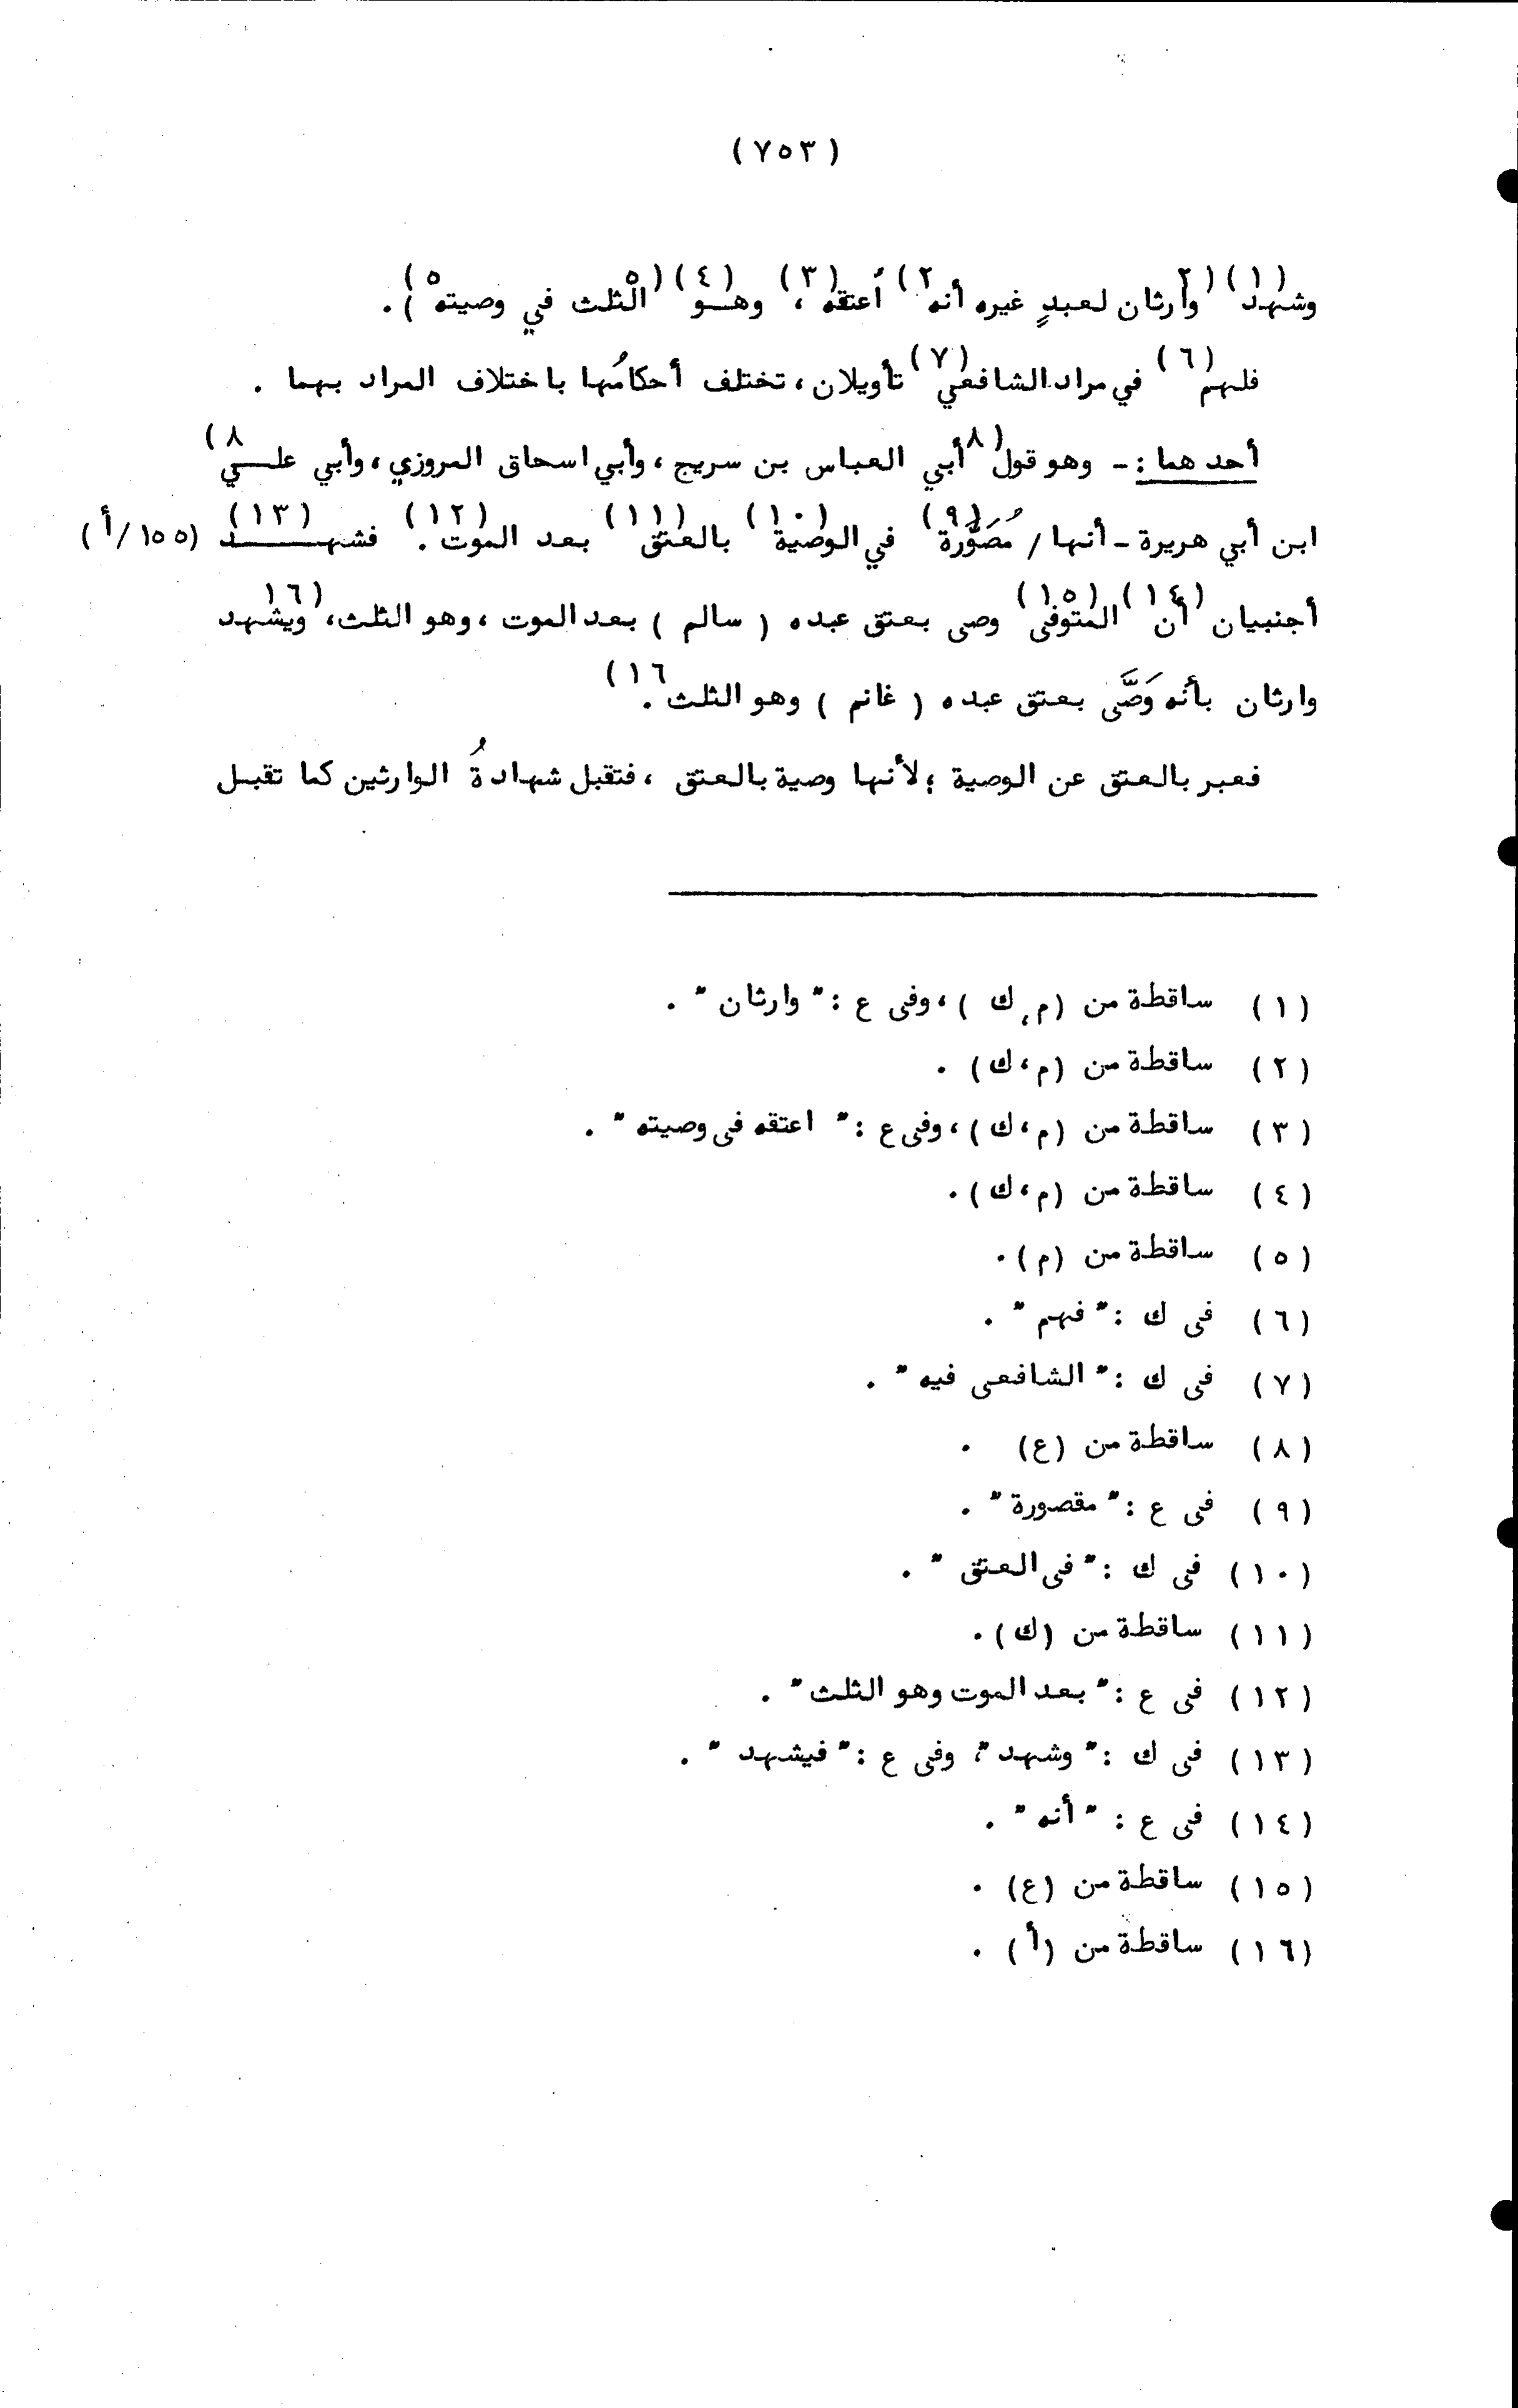 (٧٥٣)
وشهد(١) (٢)وارثان لعبدٍ غيره أنه(٢) أعتقه(٣)، وهـو(٤) (٥)الثلث في وصيته(٥)).
فلهم(٦) في مراد الشافعي(٧) تأويلان، تختلف أحكامُها باختلاف المراد بهما .
أحدهما :- وهو قول (٨)أبي العباس بن سريج، وأبي اسحاق المروزي، وأبي علـــي(٨)
ابن أبي هريرة - أنها / مُصَوَّرة(٩) في الوصية(١٠) بالعتق(١١) بعد الموت(١٢). فشهـــــد(١٣) (١٥٥/أ)
أجنبيان أن(١٤) المتوفى(١٥) وصى بعتق عبده ( سالم ) بعد الموت، وهو الثلث، (١٦)ويشهد
وارثان بأنه وَصَّى بعتق عبده ( غانم ) وهو الثلث(١٦).
فعبر بالعتق عن الوصية ؛ لأنها وصية بالعتق، فتقبل شهادةُ الوارثين كما تقبـل
(١) ساقطة من (م، ك )، وفى ع : " وارثان " .
(٢) ساقطة من (م، ك) .
(٣) ساقطة من (م، ك)، وفى ع : " اعتقه فى وصيته " .
(٤) ساقطة من (م، ك).
(٥) ساقطة من (م).
(٦) فى ك : " فهم " .
(٧) فى ك : " الشافعى فيه " .
(٨) ساقطة من (ع) .
(٩) فى ع : " مقصورة " .
(١٠) فى ك : " فى العتق " .
(١١) ساقطة من (ك).
(١٢) فى ع : " بعد الموت وهو الثلث " .
(١٣) فى ك : " وشهد "، وفى ع : " فيشهد " .
(١٤) فى ع : " أنه " .
(١٥) ساقطة من (ع) .
(١٦) ساقطة من (أ) .